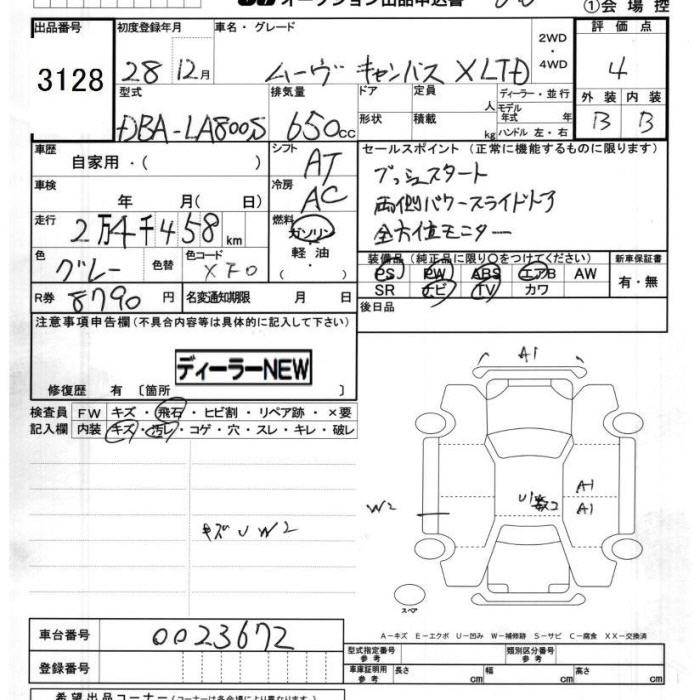 オークション出品申込書
①会場控
出品番号 初度登録年月 車名・グレード 2WD・4WD 評価点
3128 28 12月 ムーヴ キャンバス XLTD 4
型式 排気量 ドア 定員 ディーラー・並行 外装 内装
DBA-LA800S 650cc 形状 積載 人 kg モデル年式 年 ハンドル 左・右 B B
車歴 自家用・( ) シフト AT セールスポイント (正常に機能するものに限ります)
プッシュスタート
車検 年 月( 日) 冷房 AC 両側パワースライドドア
走行 2万4千458km 燃料 ガソリン・軽油・( ) 全方位モニター
色 グレー 色替 色コード 装備品 (純正品に限り〇をつけてください) 新車保証書
PS PW ABS エアB AW 有・無
SR ナビ TV カワ
R券 8790円 名変通知期限 月 日 後日品
注意事項申告欄 (不具合内容等は具体的に記入して下さい)
ディーラーNEW
修復歴 有 〔箇所 〕
検査員 FW キズ・飛石・ヒビ割・リペア跡・×要
記入欄 内装 キズ・汚レ・コゲ・穴・スレ・キレ・破レ
A1
A1
U1 数コ A1
W2
キズ U W2
スペア
A-キズ E-エクボ U-凹み W-補修跡 S-サビ C-腐食 XX-交換済
車台番号 0023672
型式指定番号 参考 類別区分番号 参考
登録番号 車庫証明用 参考 長さ cm 幅 cm 高さ cm
希望出品コーナー (コーナーは各会場により異なります)